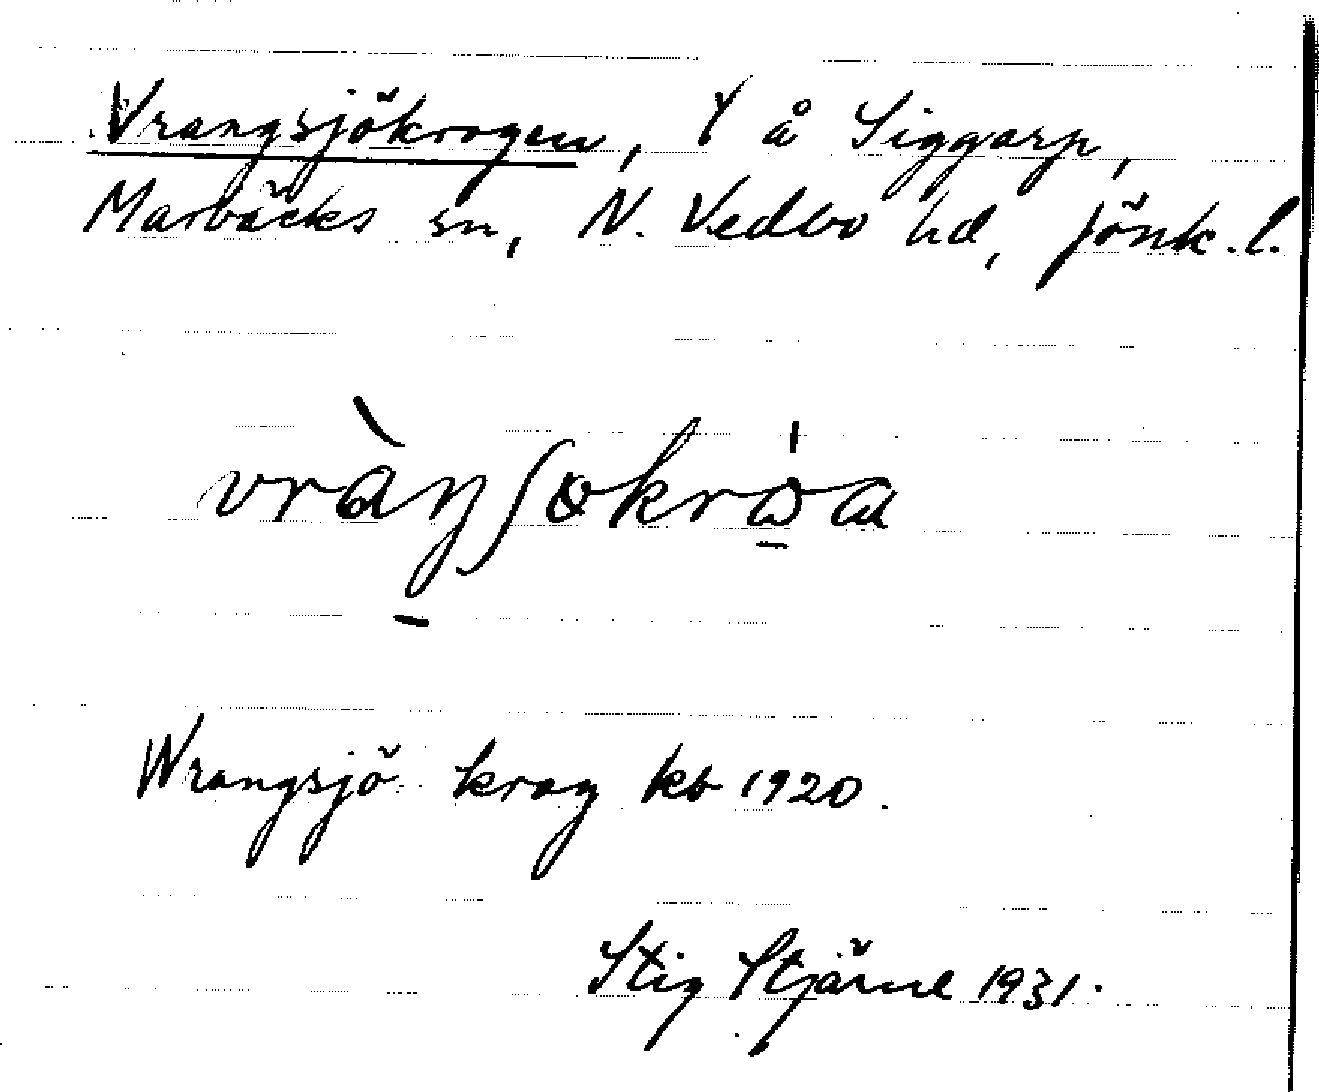 Vrangsjökrogen, Y å Siggarp,
Marbäcks sn, N. Vedbo hd, Jönk. l.
vràŋʃɵkrɷ̀a
Wrangsjö krog kb 1920.
Stig Stjärne 1931.